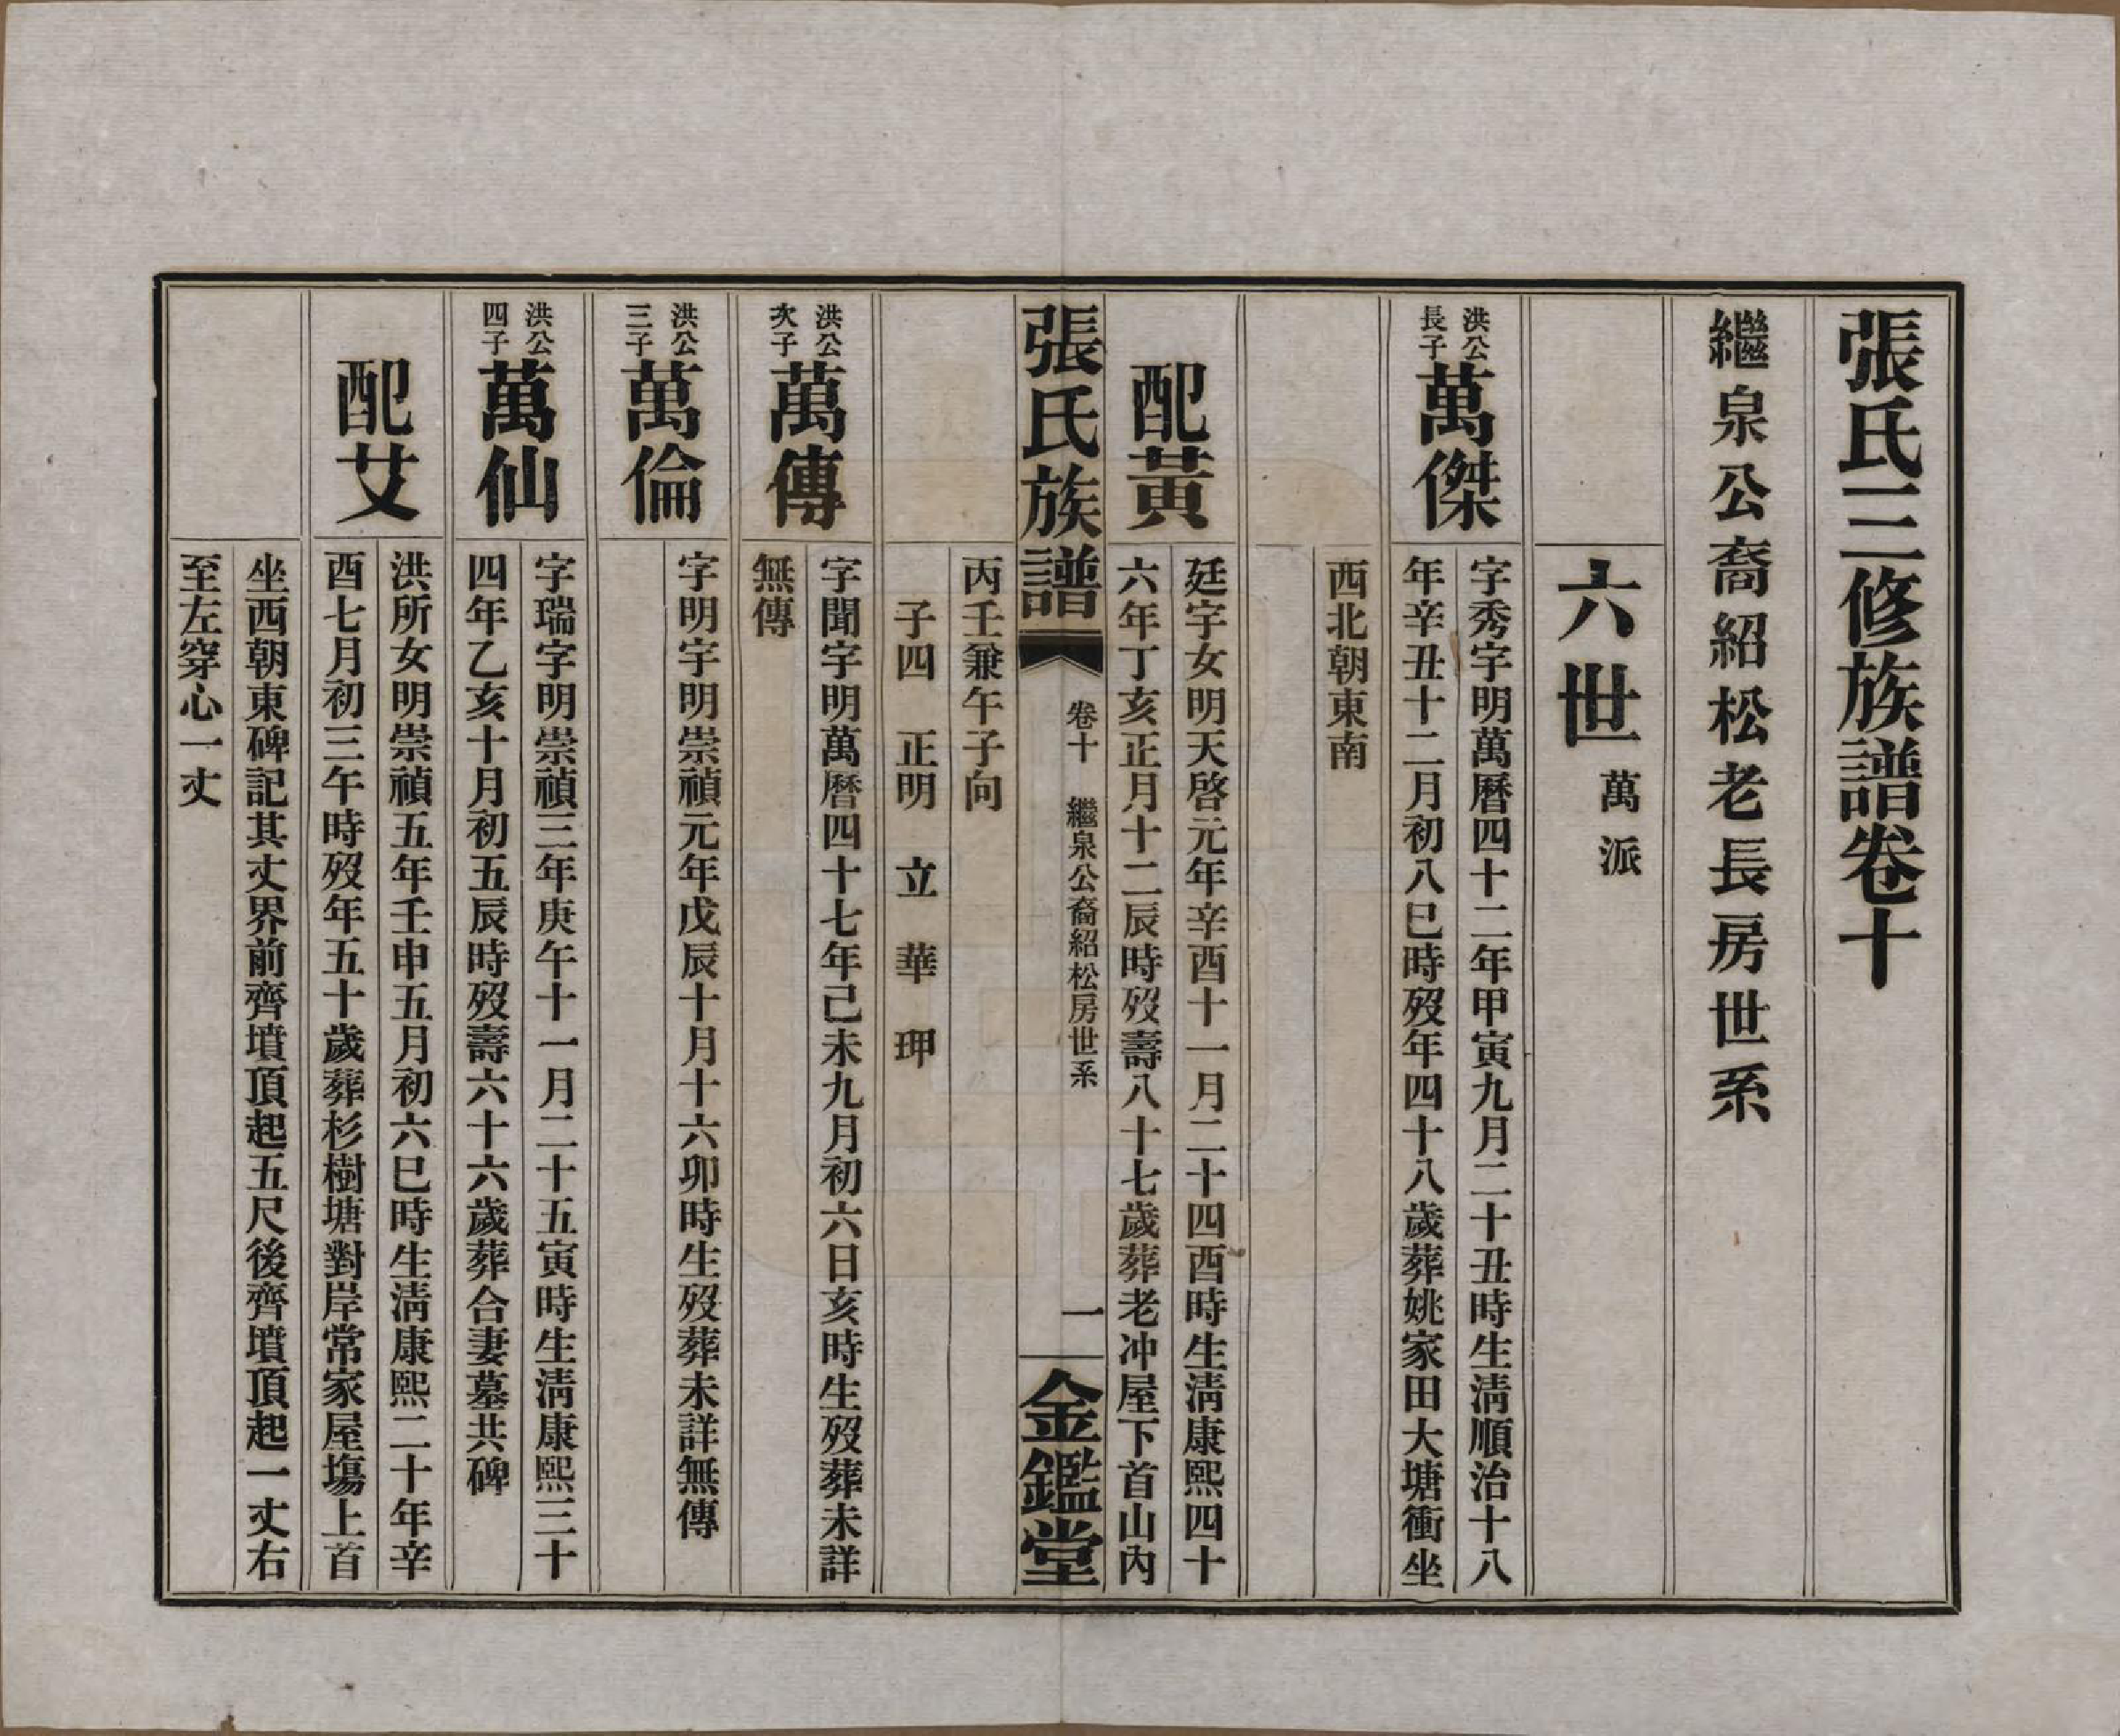 張氏三修族譜卷十
繼泉公裔紹松老長房世系
六世 萬派
洪公長子
萬傑
字秀宇明萬曆四十二年甲寅九月二十丑時生淸順治十八
年辛丑十二月初八巳時歿年四十八歲葬姚家田大塘衝坐
西北朝東南
配黃
廷宇女明天啓元年辛酉十一月二十四酉時生淸康熙四十
六年丁亥正月十二辰時歿壽八十七歲葬老冲屋下首山內
張氏族譜 卷十 繼泉公裔紹松房世系 一 金鑑堂
丙壬兼午子向
子四 正明 立 華 玾
洪公次子
萬傳
字聞宇明萬曆四十七年己未九月初六日亥時生歿葬未詳
無傳
洪公三子
萬倫
字明宇明崇禎元年戊辰十月十六卯時生歿葬未詳無傳
洪公四子
萬仙
字瑞宇明崇禎三年庚午十一月二十五寅時生淸康熙三十
四年乙亥十月初五辰時歿壽六十六歲葬合妻墓共碑
配艾
洪所女明崇禎五年壬申五月初六巳時生淸康熙二十年辛
酉七月初三午時歿年五十歲葬杉樹塘對岸常家屋塲上首
坐西朝東碑記其丈界前齊墳頂起五尺後齊墳頂起一丈右
至左穿心一丈